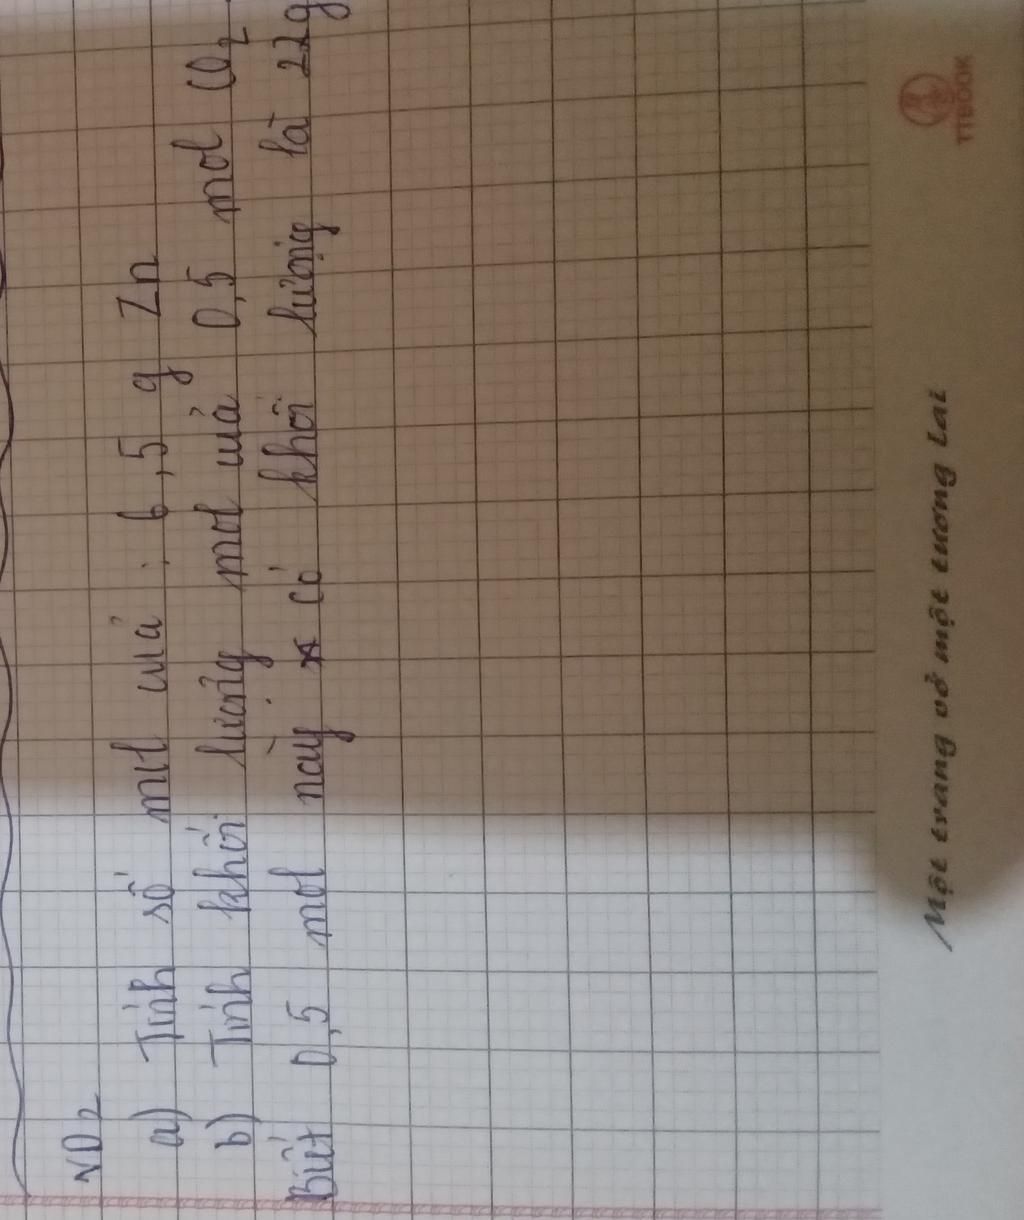 VD2
a) Tính số mol của : 6,5 g Zn
b) Tính khối lượng mol của 0,5 mol CO2
Biết 0,5 mol này có khối lượng là 22g
Một trang vở một tương lai
TTBOOK